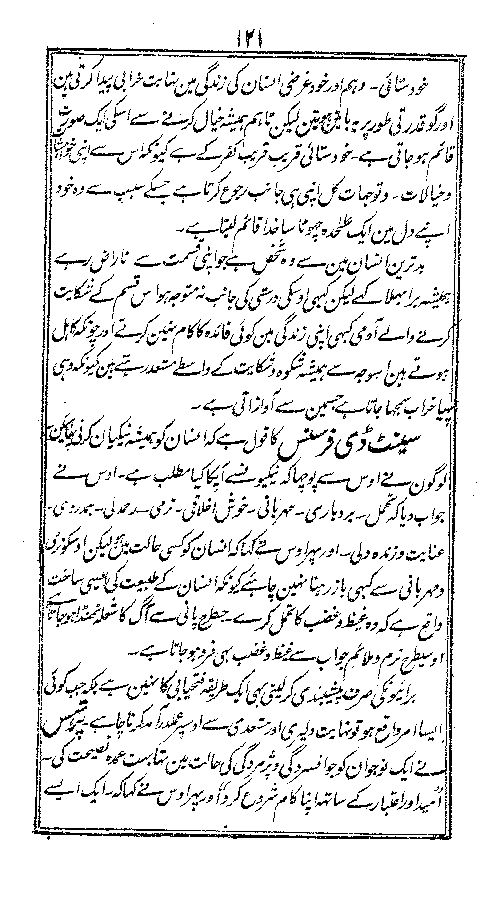 ۱۲۱
خودستائی - وہم اور خود غرضی انسان کی زندگی مین نہایت خرابی پیدا کرتی ہین
اور گو قدرتی طور پر یہ باتین ہوتین لیکن تاہم ہمیشہ خیال کرنے سے اسکی ایک صورت
قائم ہو جاتی ہے - خودستائی قریب قریب کفر کے ہے کیونکہ اس سے اپنی خواہشات
وخیالات - وتوجہات کل اپنی ہی جانب رجوع کرتا ہے جسکے سبب سے وہ خود
اپنے دل مین ایک علٰحدہ چھوٹا سا خدا قائم کرلیتا ہے -
بدترین انسان مین سے وہ شخص ہے جو اپنی قسمت سے ناراض رہے
ہمیشہ برا بھلا کہے لیکن کبھی اوسکی درستی کی جانب نہ متوجہ ہو اس قسم کے شکایت
کرنے والے آدمی کبھی اپنی زندگی مین کوئی فائدہ کا کام نہین کرتے اور چونکہ کاہل
ہوتے ہین اسوجہ سے ہمیشہ شکوہ وشکایت کے واسطے مستعد رہتے ہین کیونکہ وہی
پہیا خراب سمجھا جاتا ہے جسمین سے آواز آتی ہے -
سینٹ ڈی فرسنس کا قول ہے کہ انسان کو ہمیشہ نیکیان کرنی چاہئین
لوگون نے اوس سے پوچھا کہ نیکیونسے آپکا کیا مطلب ہے - اوس نے
جواب دیا کہ تحمل - بردباری - مہربانی - خوش اخلاقی - نرمی - رحمدلی - ہمدردی -
عنایت وزندہ دلی - اور پھر اوس نے کہا کہ انسان کو کسی حالت مین ہو لیکن دلسوزی
ومہربانی سے کبھی باز رہنا نہین چاہئے کیونکہ انسان کے طبیعت کی ایسی ساخت
واقع ہے کہ وہ غیظ وغضب کا تحمل کرے - جسطرح پانی سے آگ کا شعلہ ٹھنڈا ہو جاتا ہے
اوسیطرح نرم وملائم جواب سے غیظ وغضب بھی فرد ہو جاتا ہے -
برائیونکی صرف پیشبندی کر لینی بھی ایک طریقہ فتحیابی کا نہین ہے بلکہ جب کوئی
ایسا امر واقع ہو تو نہایت دلیری اور مستعدی سے اوسپر عملدرآمد کرنا چاہئے -
نے ایک نوجوان کو جو افسردگی وپژمردگی کی حالت مین تھا بہت عمدہ نصیحت کی -
اُمید اور اعتبار کے ساتھ اپنا کام شروع کردو اور پھر اوس نے کہا کہ - ایک ایسے